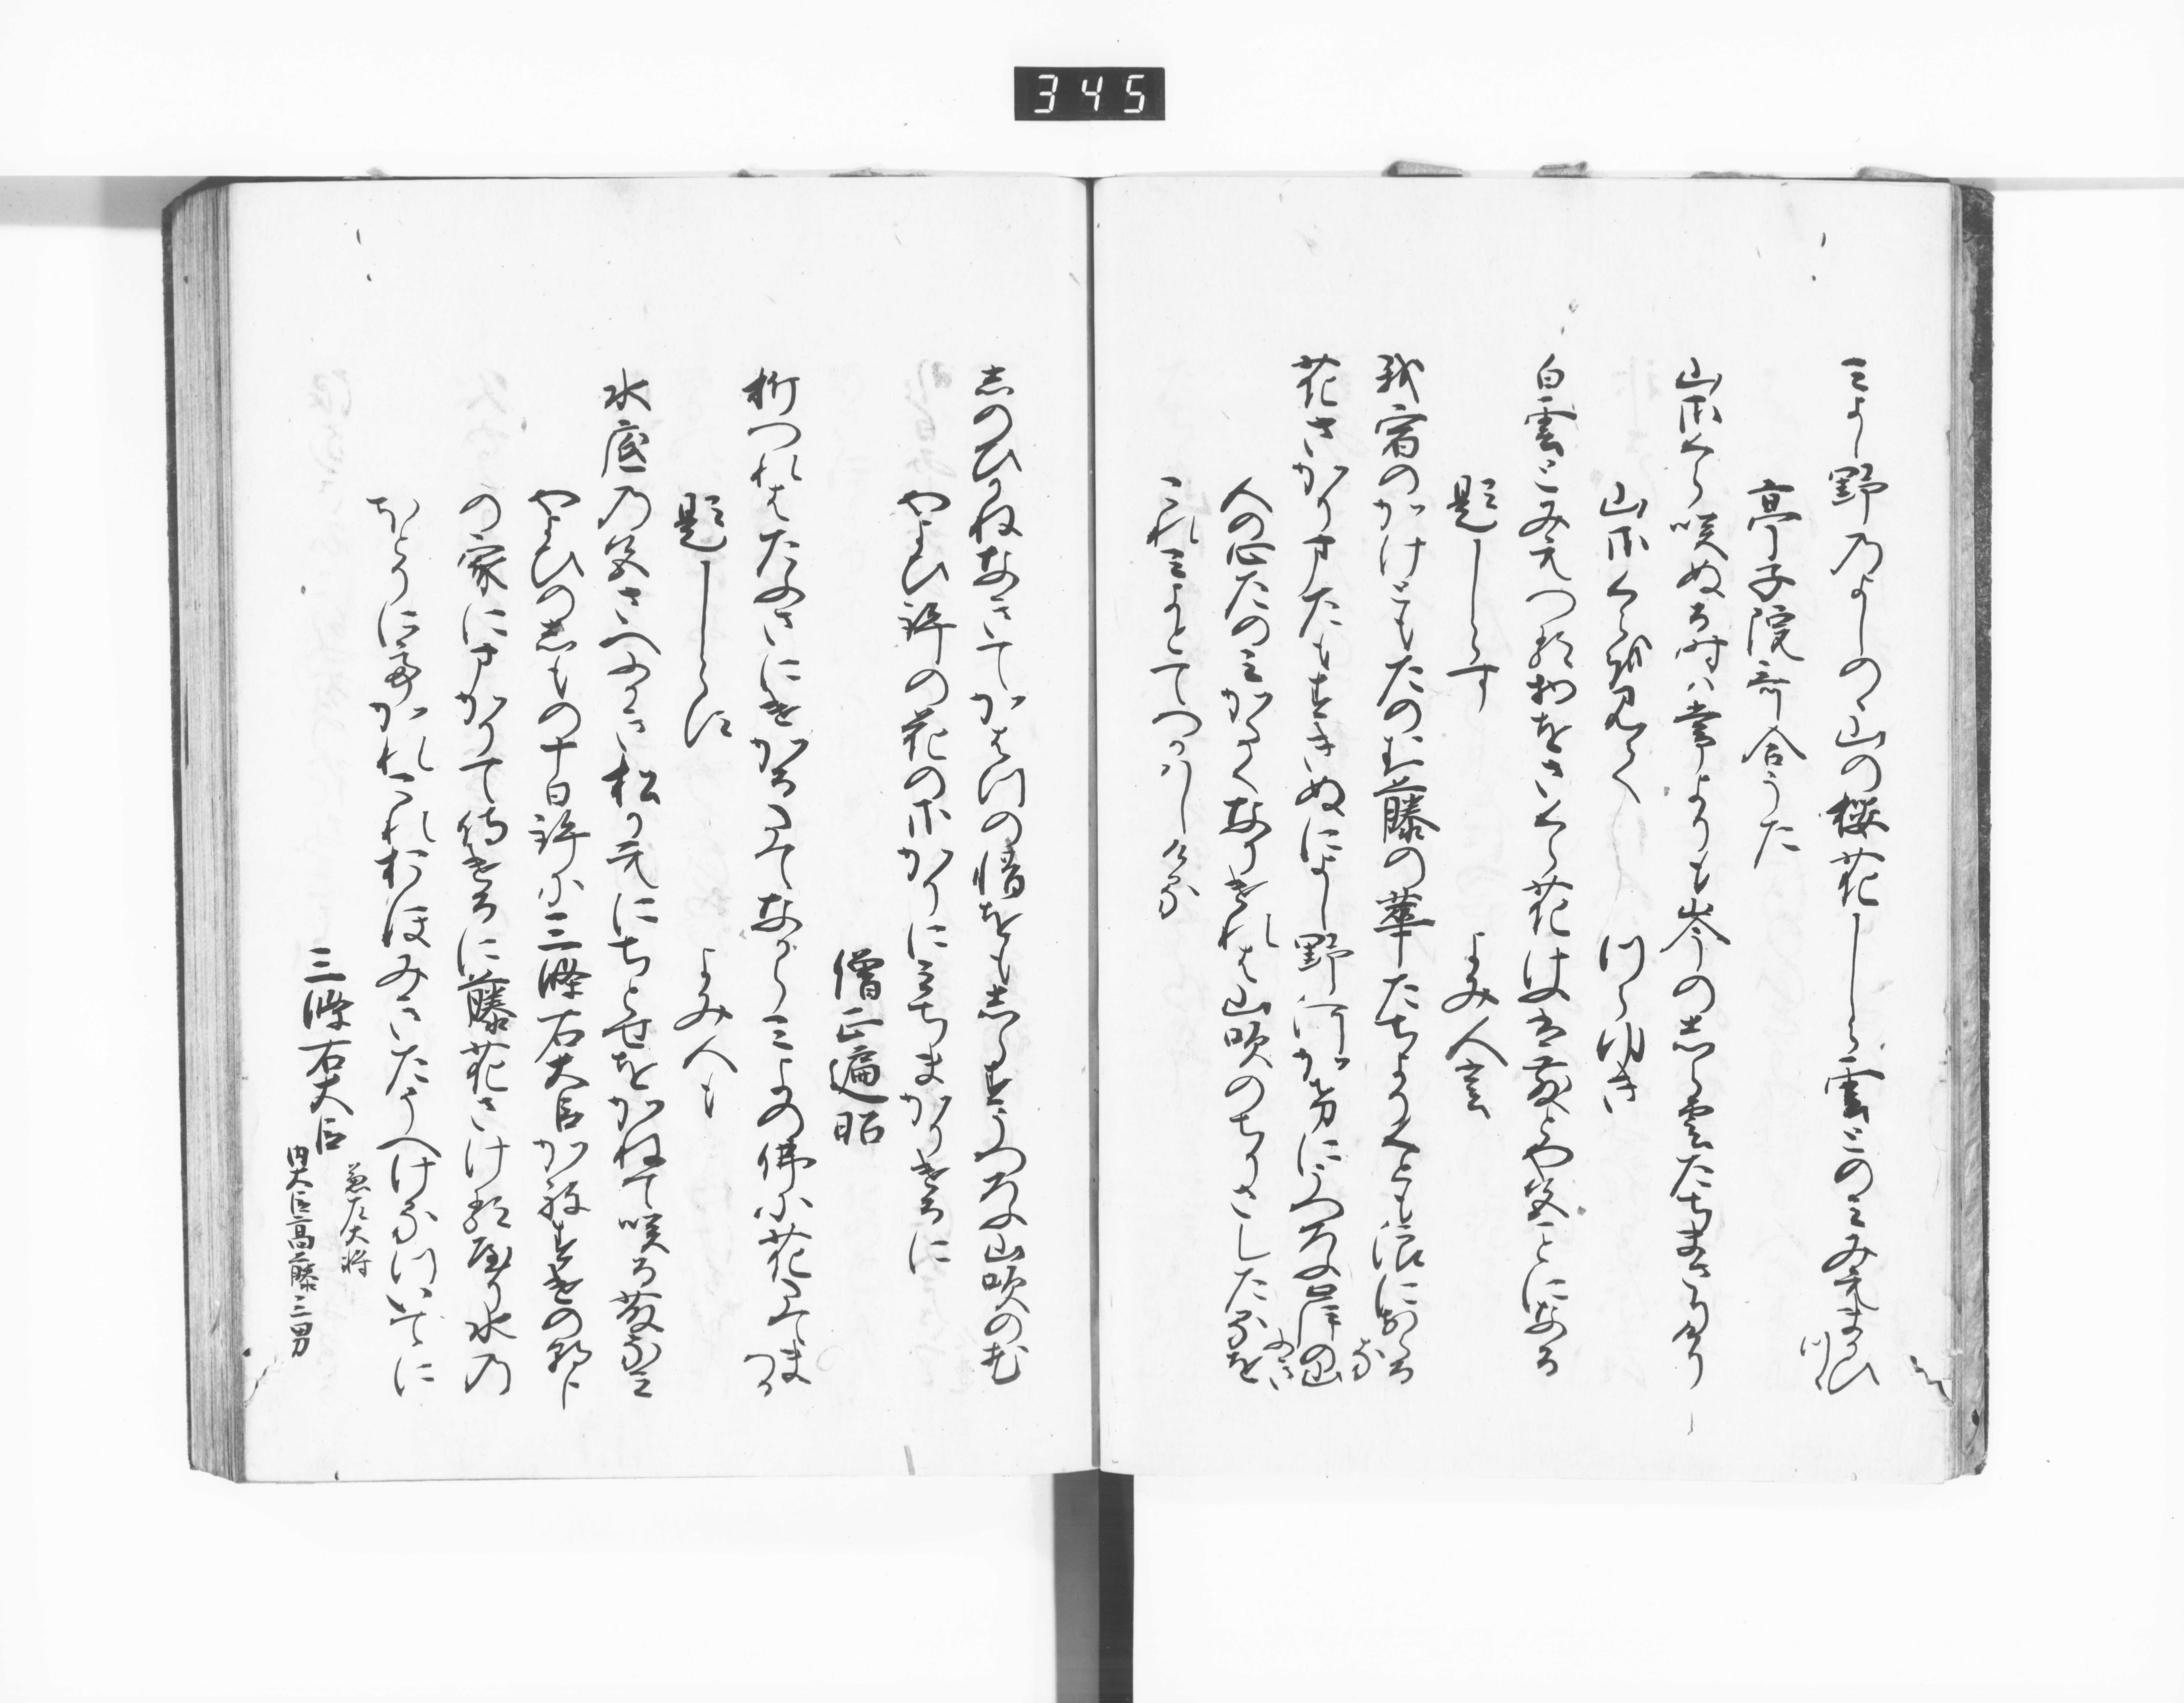 三よし野乃よしのゝ山の桜花しら雲とのみみえまかひつゝ
亭子院哥合うた
山さくら咲ぬる時ハ常よりも岑のしら雲たちまさりけり
山さくらを見て　つらゆき
白雲とみえつる物をさくら花けふはちるとや色ことになる
題しらす　よみ人
我宿のかけともたのむ藤の華たちよりくとも浪におらるな
花さかりまたもすきぬによし野河かけにうつろふ岸の山ふき
人の心たのみかたくなりけれは山吹のちりさしたるを
これみよとてつかはしける
しのひかねなきてかはつの惜をもしらすうつろふ山吹の花
やよひ許の花のさかりにみちまかりけるに
僧正遍昭
折つれはたふさにけかるたてなからみよの佛に花たてまつる
題しらす　よみ人も
水底乃色さへふかき松か元にちとせをかねて咲る藤なみ
やよひのしもの十日許に三條右大臣かねすけの朝臣
の家にまかりて侍けるに藤花さける屋り水乃
ほとりにてかれこれおほみきたうへけるついてに
三條右大臣
兼左大将
内大臣高藤三男
345